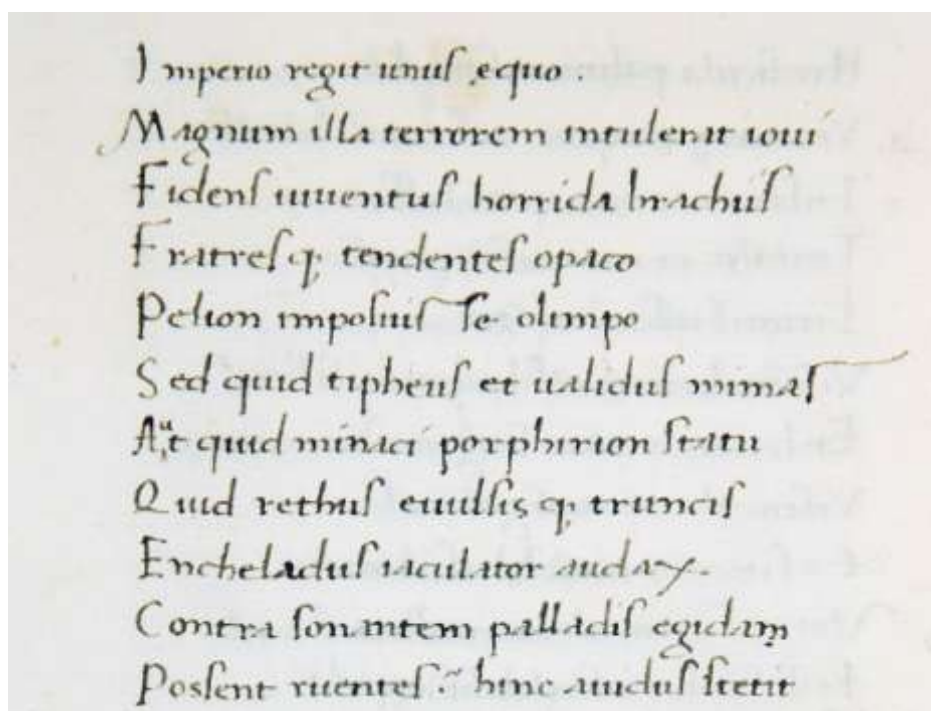 Imperio regit unus equo.
Magnum illa terrorem intulerat ioui
Fidens iuuentus horrida brachiis
Fratresq; tendentes opaco
Pelion imposuisse olimpo
Sed quid tipheus et ualidus mimas
Aut quid minaci porphirion statu
Quid rethus euulsisq; truncis
Encheladus iaculator audax.
Contra sonantem palladis egidam
Possent ruentes? hinc auidus stetit